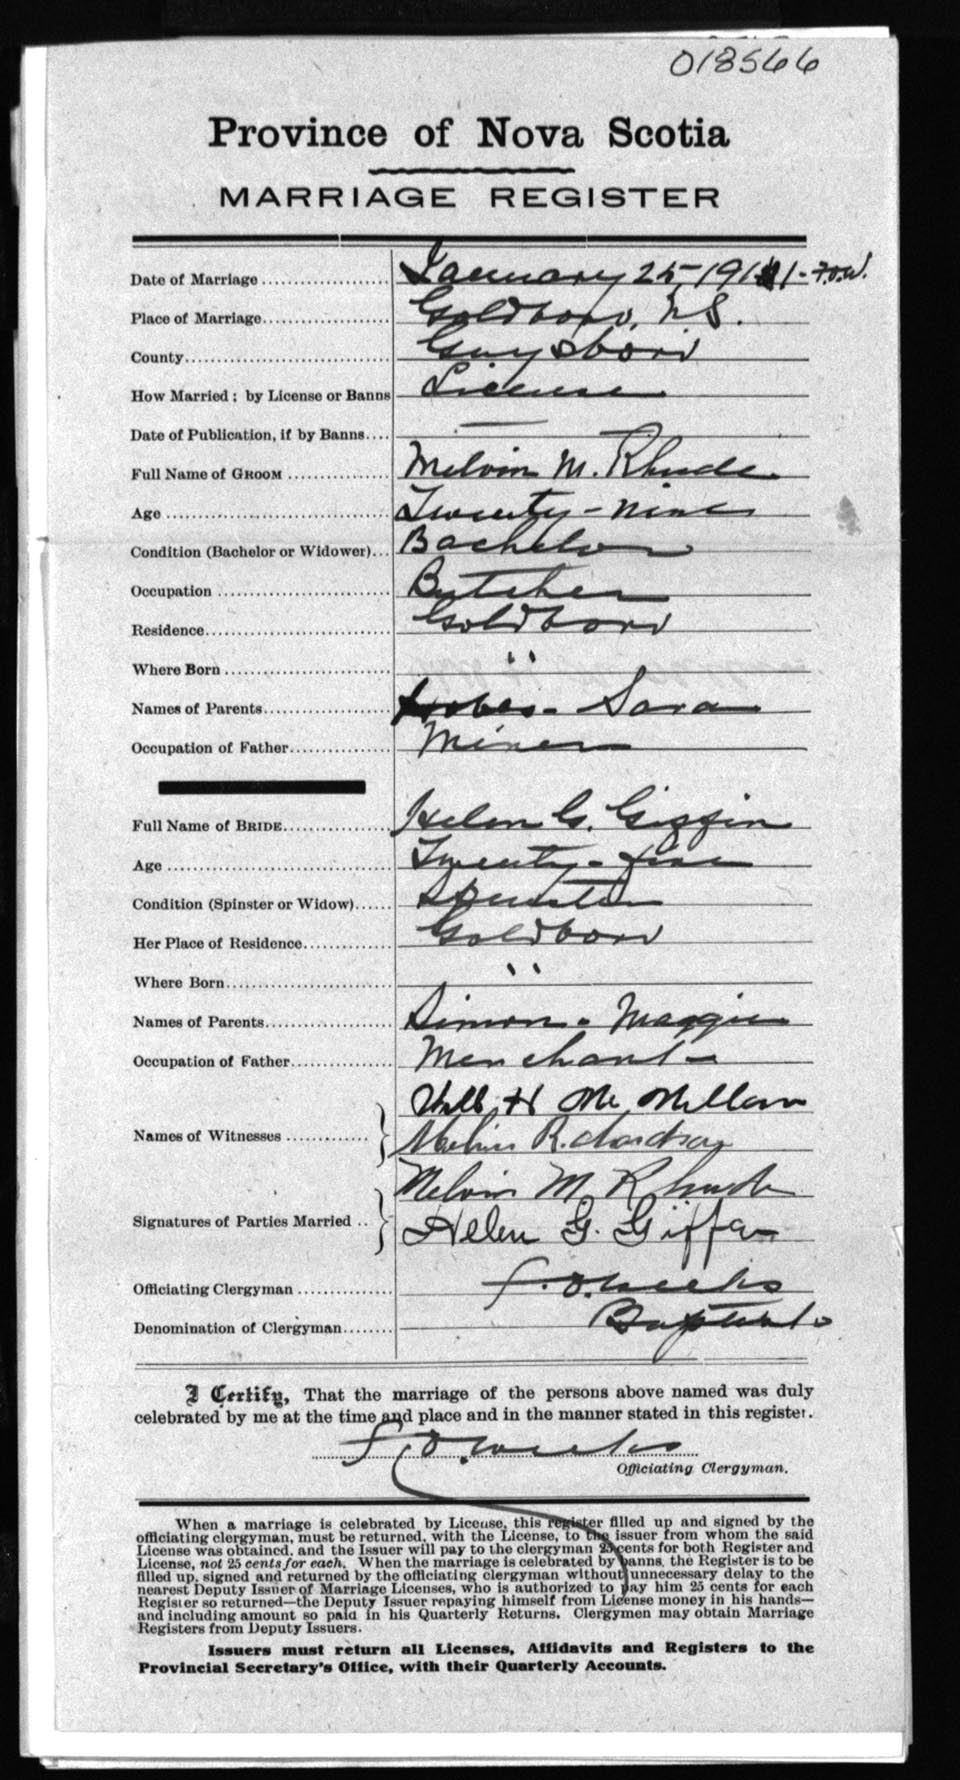 018566
Province of Nova Scotia
MARRIAGE REGISTER
Date of Marriage January 25, 1911 - F.O.W.
Place of Marriage Goldboro, N.S.
County Guysboro
How Married; by License or Banns License
Date of Publication, if by Banns —
Full Name of GROOM Melvin M. Rhude
Age Twenty-nine
Condition (Bachelor or Widower) Bachelor
Occupation Butcher
Residence Goldboro
Where Born "
Names of Parents - Sara
Occupation of Father Miner
Full Name of BRIDE Helen G. Giffin
Age Twenty-five
Condition (Spinster or Widow) Spinster
Her Place of Residence Goldboro
Where Born "
Names of Parents Simon - Maggie
Occupation of Father Merchant
Will H McMillan
Names of Witnesses Richardson
Melvin M Rhude
Signatures of Parties Married Helen G. Giffin
Officiating Clergyman F.O. Weeks
Denomination of Clergyman Baptist
I Certify, That the marriage of the persons above named was duly
celebrated by me at the time and place and in the manner stated in this register.
F.O. Weeks
Officiating Clergyman.
When a marriage is celebrated by License, this register filled up and signed by the
officiating clergyman, must be returned, with the License, to the issuer from whom the said
License was obtained, and the Issuer will pay to the clergyman 25 cents for both Register and
License, not 25 cents for each. When the marriage is celebrated by banns, the Register is to be
filled up, signed and returned by the officiating clergyman without unnecessary delay to the
nearest Deputy Issuer of Marriage Licenses, who is authorized to pay him 25 cents for each
Register so returned—the Deputy Issuer repaying himself from License money in his hands—
and including amount so paid in his Quarterly Returns. Clergymen may obtain Marriage
Registers from Deputy Issuers.
Issuers must return all Licenses, Affidavits and Registers to the
Provincial Secretary's Office, with their Quarterly Accounts.